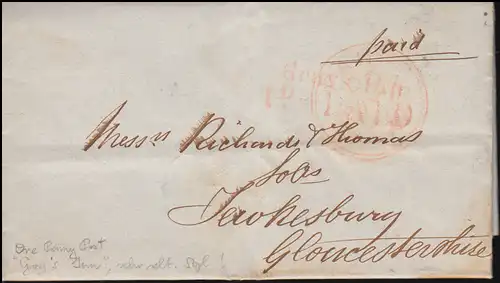 paid
Gray's Inn
1D PAID
Messrs Richards & Thomas
Sols
Tewkesbury
Gloucestershire
One Penny Post
"Gray's Inn", sehr selt. Stpl !